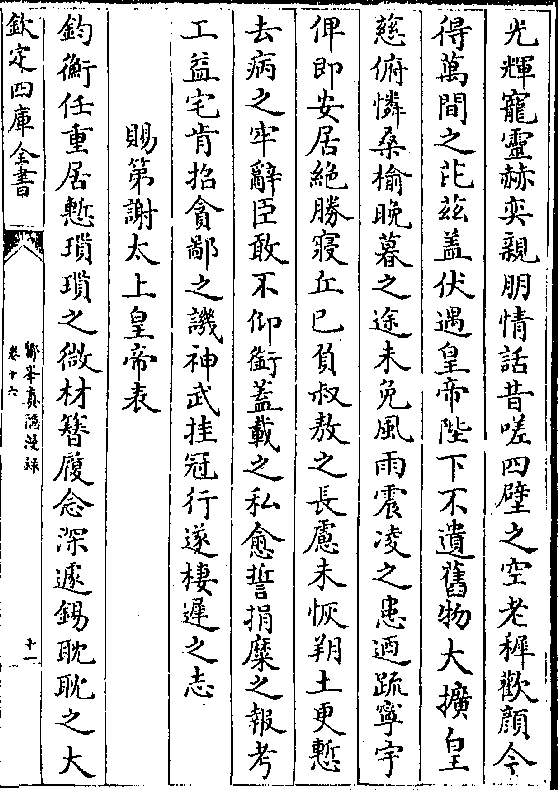 光輝寵靈赫奕親朋情話昔嗟四壁之空老穉歡顔今
得萬間之芘茲盖伏遇皇帝陛下不遺舊物大擴皇
慈俯憐桑榆晩暮之途未免風雨震凌之患迺䟽寧宇
俾即安居絶勝寢丘已負叔敖之長慮未恢朔土更慙
去病之牢辭臣敢不仰銜蓋載之私愈誓捐糜之報考
工益宅肯招貪鄙之譏神武挂冠行遂棲遲之志
賜第謝太上皇帝表
鈞衡任重居慙瑣瑣之微材簪履念深遽錫耽耽之大
欽定四庫全書
鄮峯真隱漫録
卷十六
十一